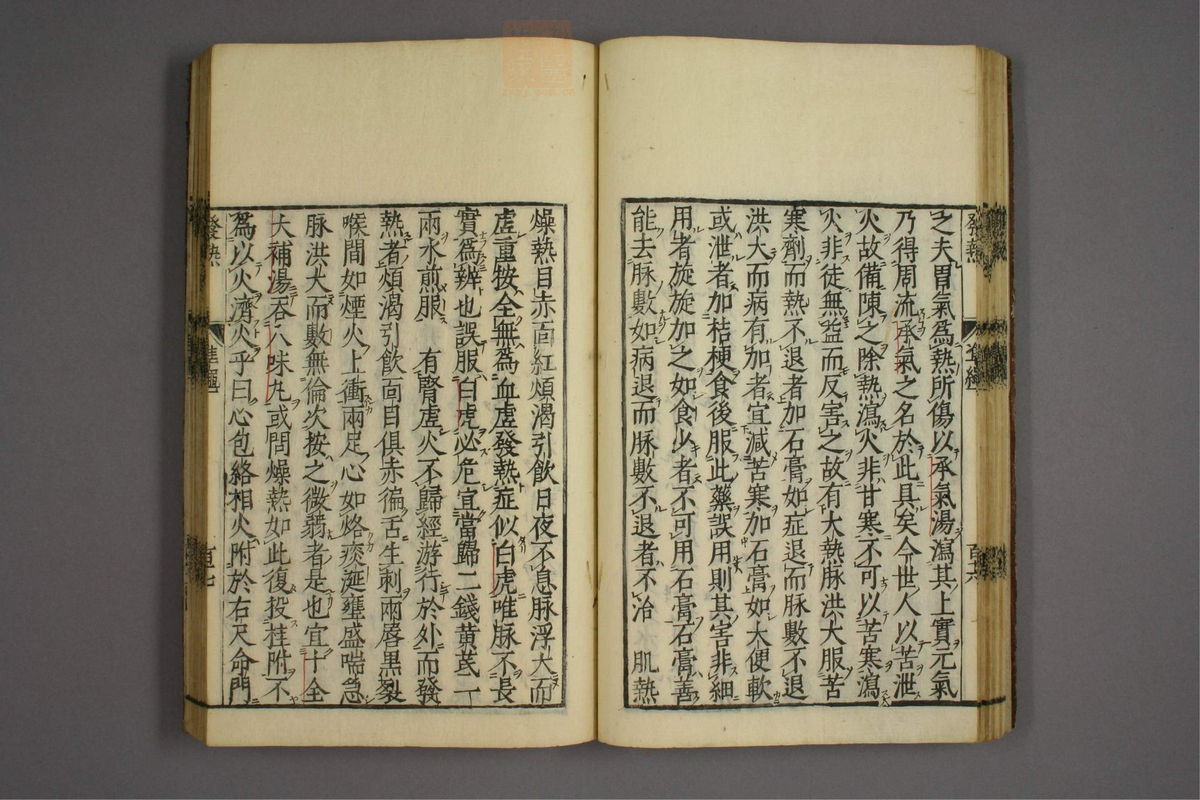 之夫胃氣爲熱所傷以承氣湯瀉其上實元氣
乃得周流承氣之名於此具矣今世人以苦泄
火故備陳之除熱瀉火非甘寒不可以苦寒瀉
火非徒無益而反害之故有大熱脉洪大服苦
寒劑而熱不退者加石膏如症退而脉數不退
洪大而病有加者宜減苦寒加石膏如大便軟
或泄者加桔梗食後服此藥誤用則其害非細
用者旋旋加之如食少者不可用石膏石膏善
能去脉數如病退而脉數不退者不治　肌熱
發熱
百六
燥熱目赤面紅煩渴引飲日夜不息脉浮大而
虛重按全無爲血虛發熱症似白虎唯脉不長
實爲辨也誤服白虎必危宜當歸二錢黄芪一
兩水煎服　有腎虛火不歸經游行於外而發
熱者煩渴引飲面目俱赤徧舌生刺兩唇黑裂
喉間如煙火上衝兩足心如烙痰涎壅盛喘急
脉洪大而數無倫次按之微弱者是也宜十全
大補湯吞八味丸或問燥熱如此復投桂附不
爲以火濟火乎曰心包絡相火附於右尺命門
發熱
百七